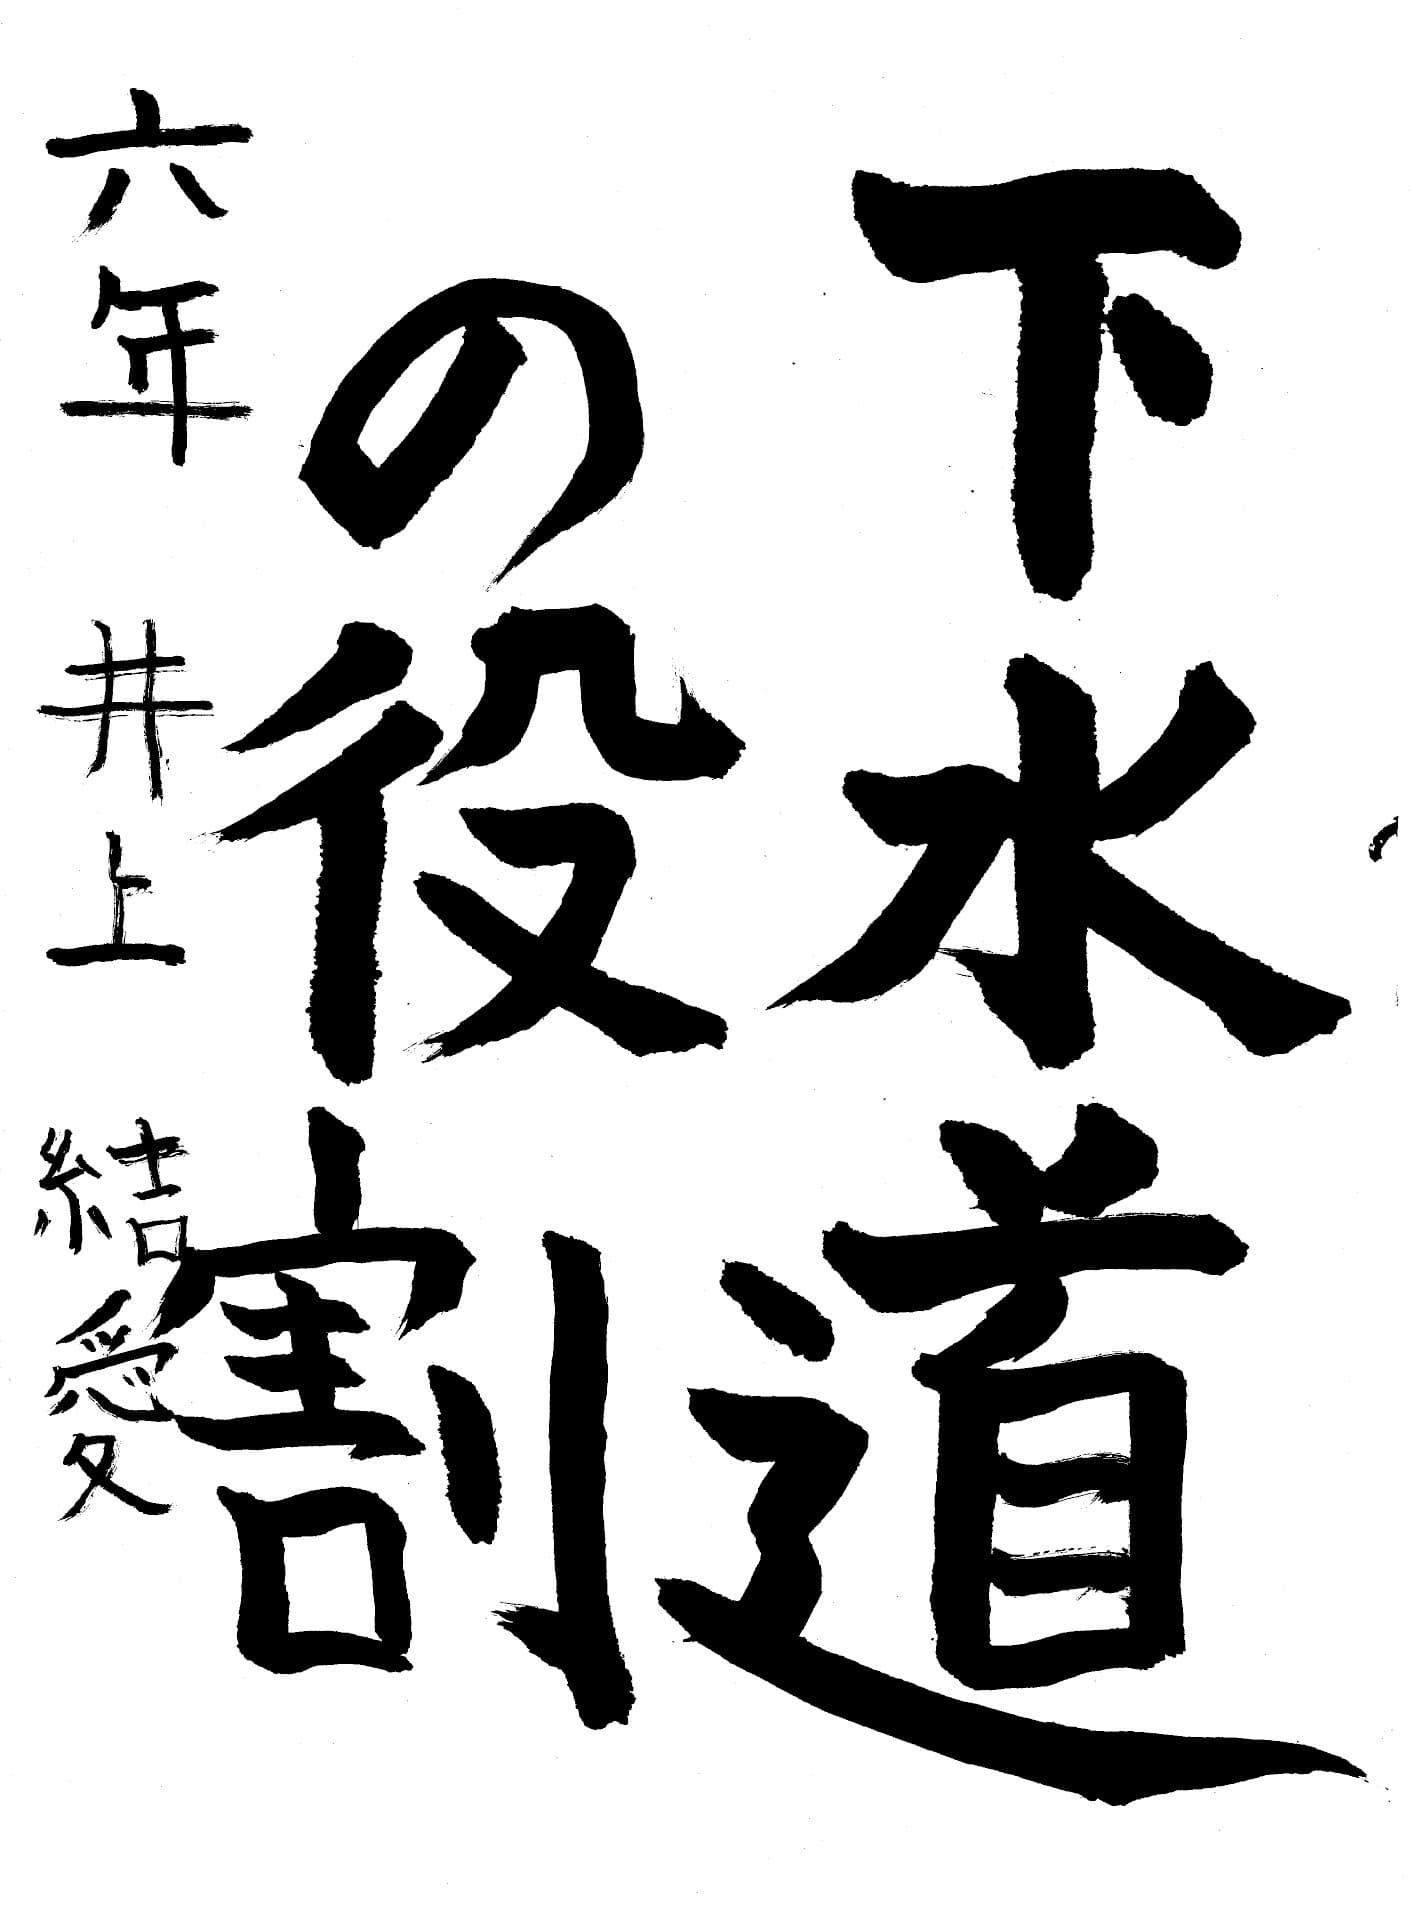 下水道
の役割
六年 井上 結愛